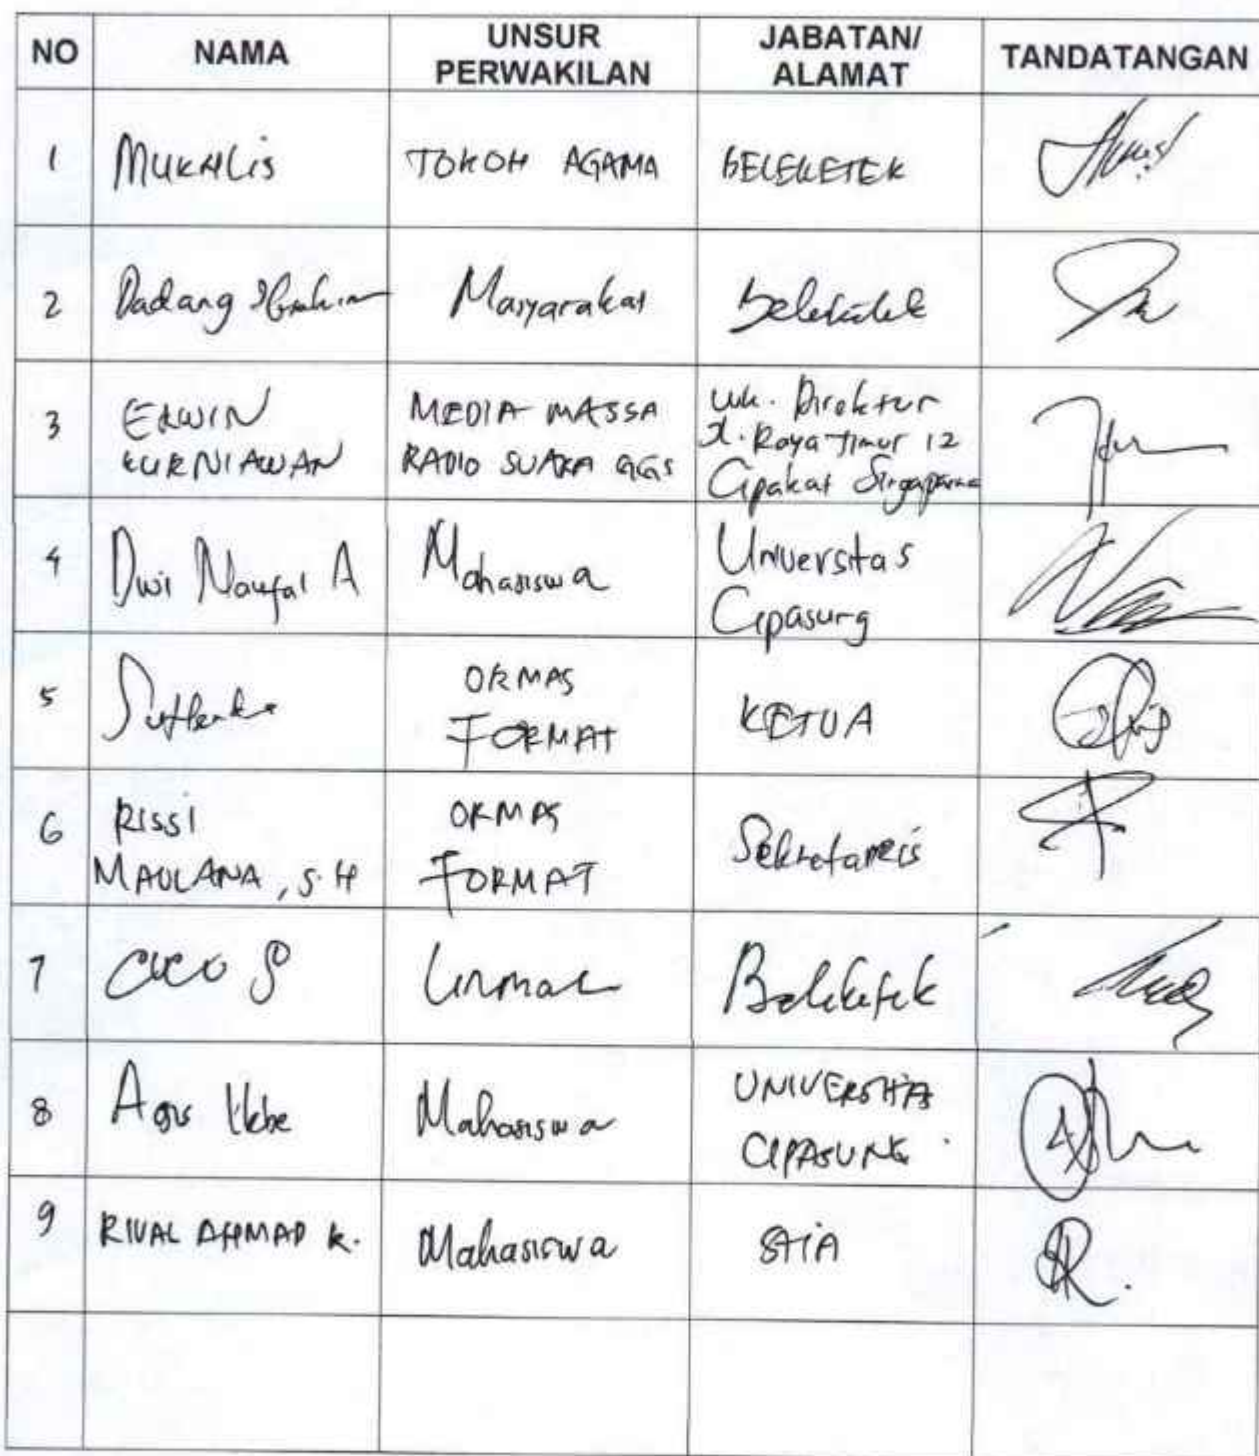 NO NAMA UNSUR PERWAKILAN JABATAN/ ALAMAT TANDATANGAN
1 MUKHLIS TOKOH AGAMA BELEKETEK
2 Dadang Ibrahim Masyarakat Beleketek
3 ERWIN KURNIAWAN MEDIA MASSA RADIO SUARA GGS Wk. Direktur Jl. Raya Timur 12 Cipakat Singaparna
4 Dwi Naufal A Mahasiswa Universitas Cipasung
5 ORMAS FORMAT KETUA
6 RISSI MAULANA, S.H ORMAS FORMAT Sekretaris
7 CUCU S Linmas Beleketek
8 Agus Mahasiswa UNIVERSITAS CIPASUNG.
9 RIVAL AHMAD K. Mahasiswa STIA